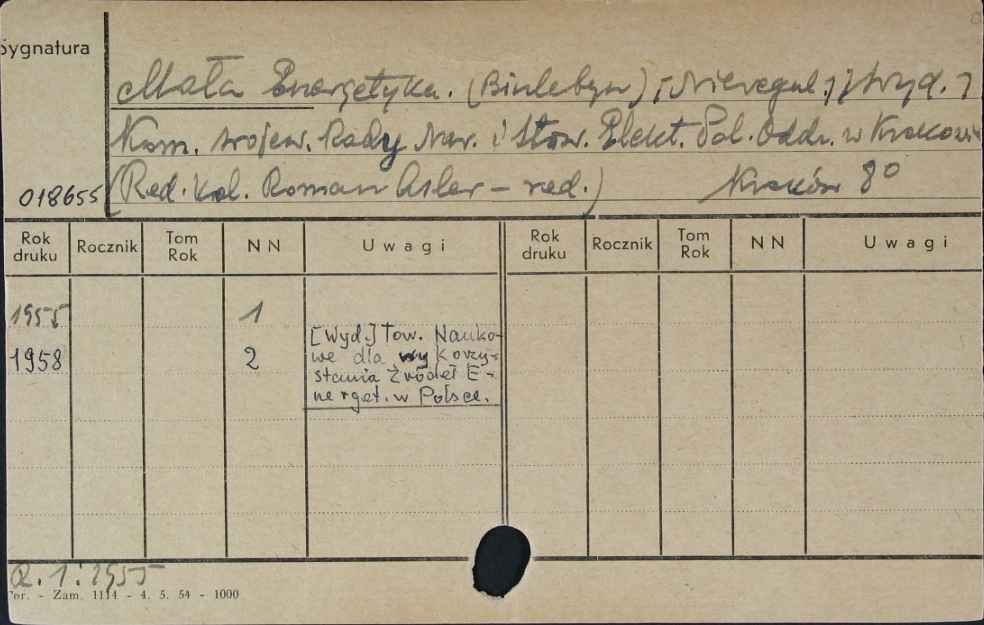 Sygnatura
Mała Energetyka. (Biuletyn) [Nieregul.] [Wyd.]
Kom. Wojew. Rady Nar. i Stow. Elekt. Pol. Oddz. w Krakowie
018655 (Red. Kol. Roman Asler – red.) Kraków 8°
Rok druku Rocznik Tom Rok NN Uwagi Rok druku Rocznik Tom Rok NN Uwagi
1955 1
[Wyd.] Tow. Nauko-
1958 2 we dla wykorzy-
stania Źródeł E-
nerget. w Polsce.
R. 1: 1955
Zam. 1114 - 4. 5. 54 - 1000